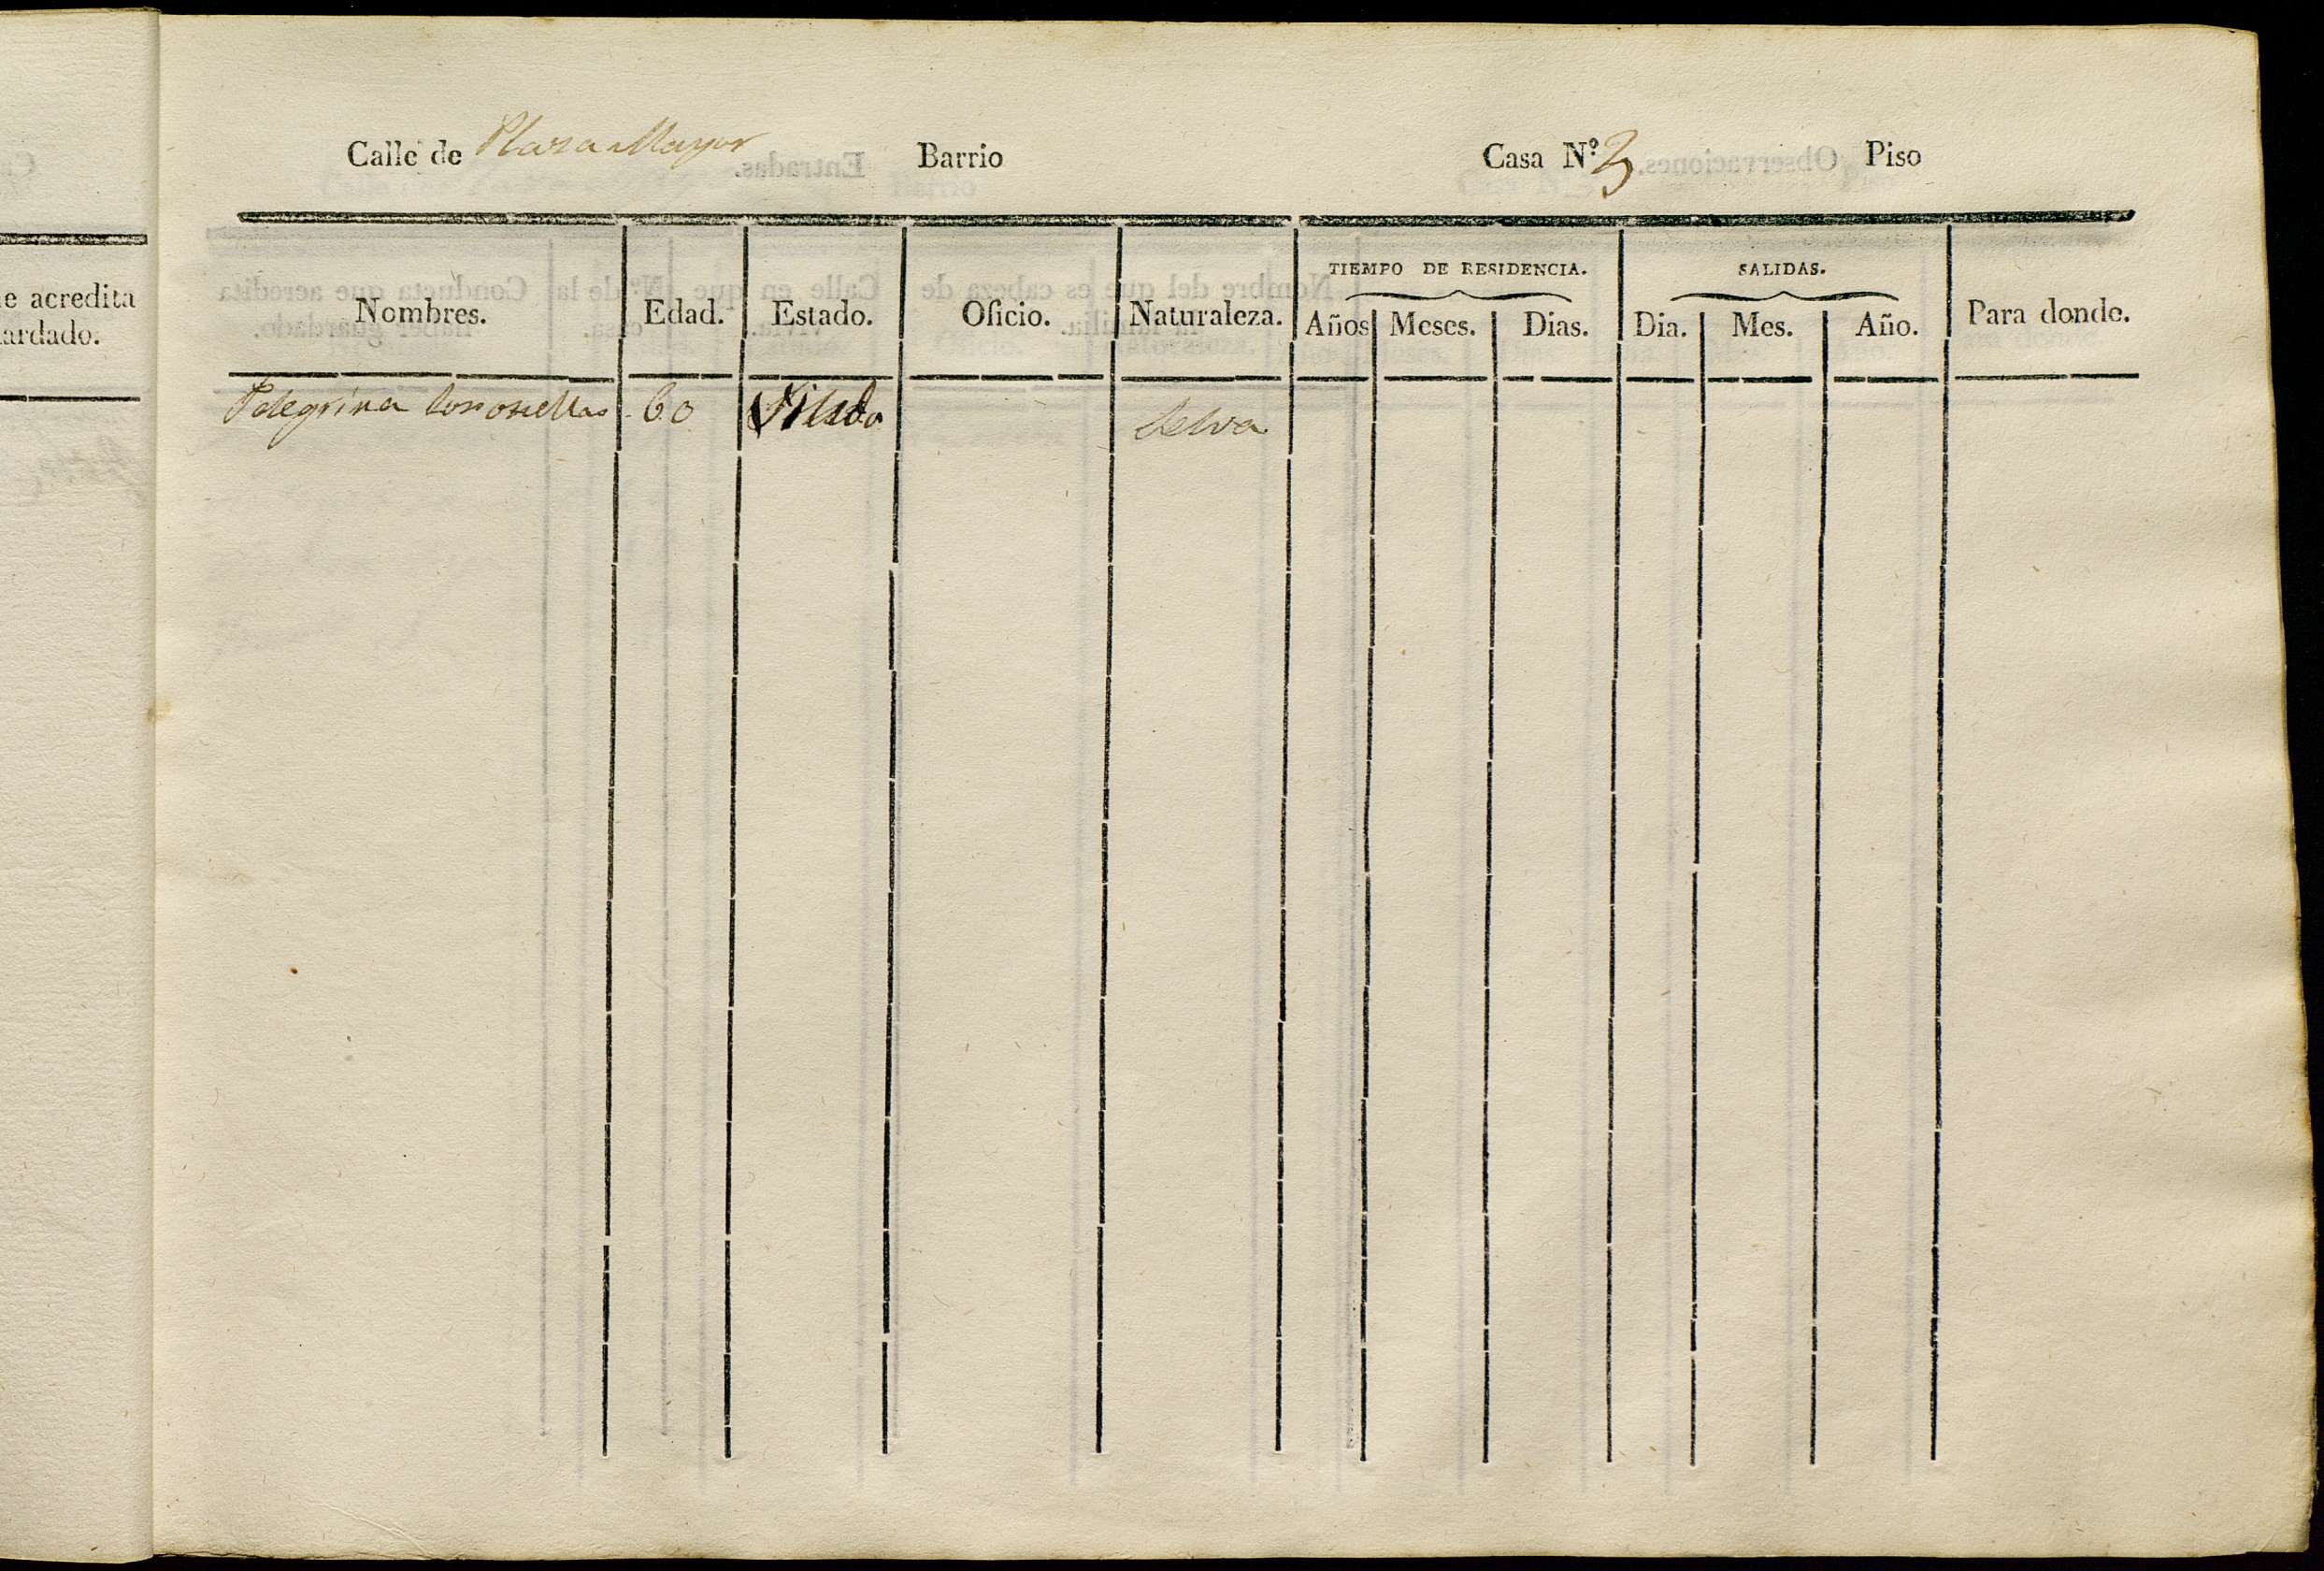 Calle de Plaza Mayor Barrio Casa N.º 3 Piso
e acredita
ardado.
TIEMPO DE RESIDENCIA. SALIDAS.
Nombres. Edad. Estado. Oficio. Naturaleza. Años Meses. Dias. Dia. Mes. Año. Para donde.
Pelegrina 60 Selva